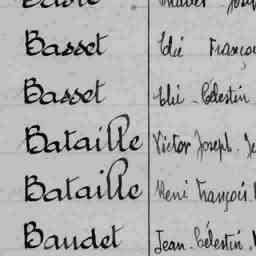 Basset Elié François
Basset Elié Célestin
Bataille Victor Joseph
Bataille Henri François
Baudet Jean Célestin